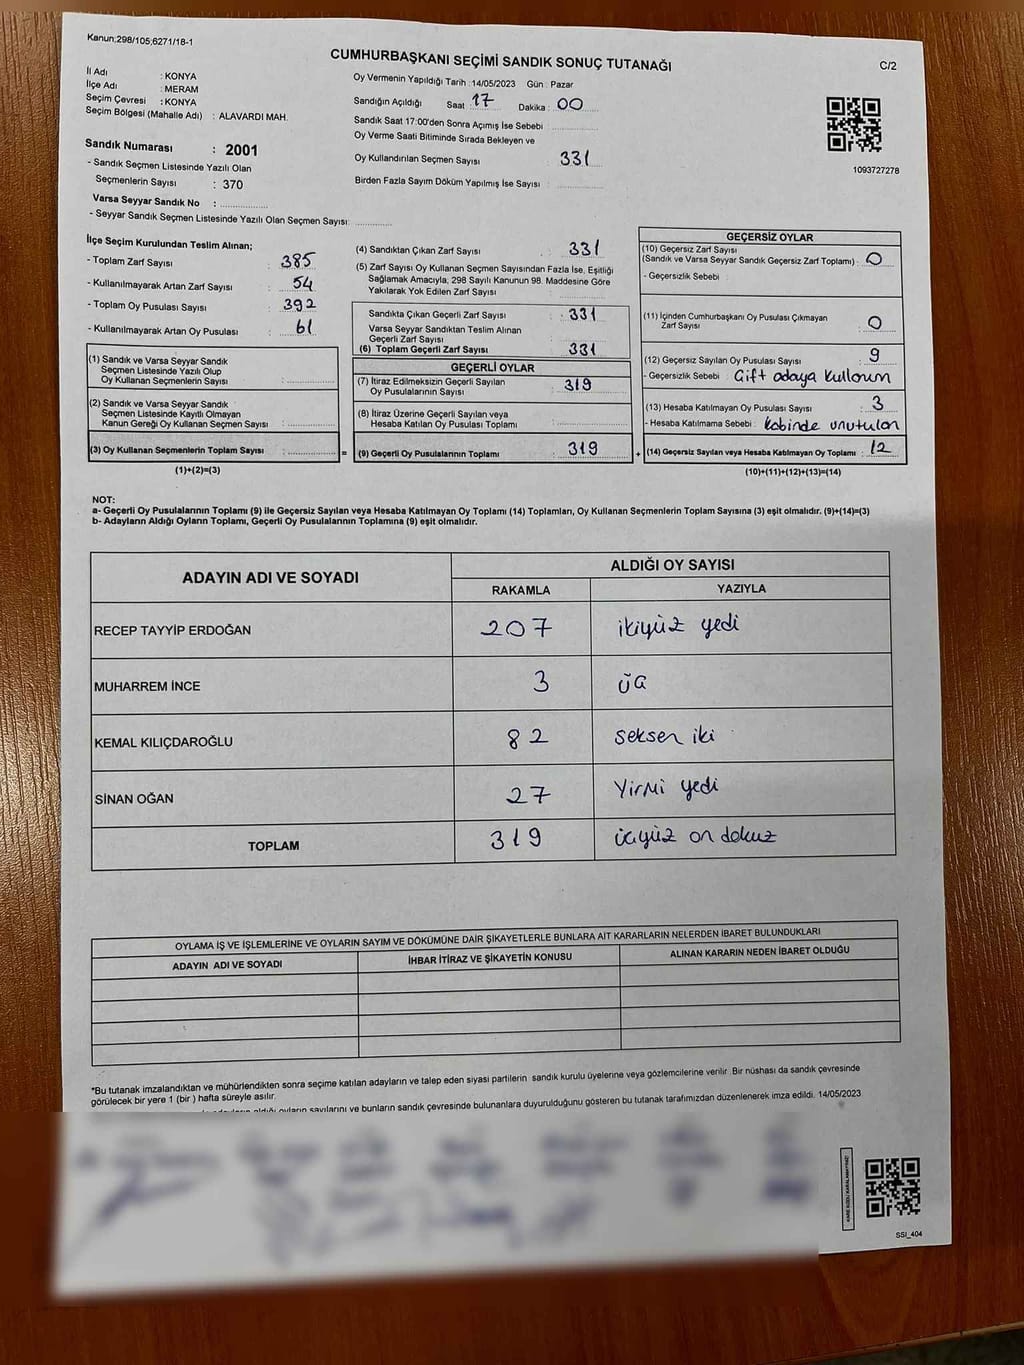 Kanun;298/105;6271/18-1
CUMHURBAŞKANI SEÇİMİ SANDIK SONUÇ TUTANAĞI
C/2
İl Adı : KONYA
İlçe Adı : MERAM
Seçim Çevresi : KONYA
Seçim Bölgesi (Mahalle Adı) : ALAVARDI MAH.
Sandık Numarası : 2001
- Sandık Seçmen Listesinde Yazılı Olan
Seçmenlerin Sayısı : 370
Varsa Seyyar Sandık No : ..............
- Seyyar Sandık Seçmen Listesinde Yazılı Olan Seçmen Sayısı: ..............
Oy Vermenin Yapıldığı Tarih : 14/05/2023 Gün : Pazar
Sandığın Açıldığı Saat 17 Dakika : 00
Sandık Saat 17:00'den Sonra Açımış İse Sebebi : ..............
Oy Verme Saati Bitiminde Sırada Bekleyen ve
Oy Kullandırılan Seçmen Sayısı : 331
Birden Fazla Sayım Döküm Yapılmış İse Sayısı : ..............
1093727278
İlçe Seçim Kurulundan Teslim Alınan;
- Toplam Zarf Sayısı : 385
- Kullanılmayarak Artan Zarf Sayısı : 54
- Toplam Oy Pusulası Sayısı : 392
- Kullanılmayarak Artan Oy Pusulası : 61
(1) Sandık ve Varsa Seyyar Sandık
Seçmen Listesinde Yazılı Olup
Oy Kullanan Seçmenlerin Sayısı : ..............
(2) Sandık ve Varsa Seyyar Sandık
Seçmen Listesinde Kayıtlı Olmayan
Kanun Gereği Oy Kullanan Seçmen Sayısı : ..............
(3) Oy Kullanan Seçmenlerin Toplam Sayısı : .............. =
(1)+(2)=(3)
(4) Sandıktan Çıkan Zarf Sayısı : 331
(5) Zarf Sayısı Oy Kullanan Seçmen Sayısından Fazla İse, Eşitliği
Sağlamak Amacıyla, 298 Sayılı Kanunun 98. Maddesine Göre
Yakılarak Yok Edilen Zarf Sayısı : ..............
Sandıkta Çıkan Geçerli Zarf Sayısı : 331
Varsa Seyyar Sandıktan Teslim Alınan
Geçerli Zarf Sayısı : ..............
(6) Toplam Geçerli Zarf Sayısı : 331
GEÇERLİ OYLAR
(7) İtiraz Edilmeksizin Geçerli Sayılan
Oy Pusulalarının Sayısı : 319
(8) İtiraz Üzerine Geçerli Sayılan veya
Hesaba Katılan Oy Pusulası Toplamı : ..............
(9) Geçerli Oy Pusulalarının Toplamı : 319 +
GEÇERSİZ OYLAR
(10) Geçersiz Zarf Sayısı
(Sandık ve Varsa Seyyar Sandık Geçersiz Zarf Toplamı) : 0
- Geçersizlik Sebebi :
(11) İçinden Cumhurbaşkanı Oy Pusulası Çıkmayan
Zarf Sayısı : 0
(12) Geçersiz Sayılan Oy Pusulası Sayısı : 9
- Geçersizlik Sebebi : Çift adaya kullanım
(13) Hesaba Katılmayan Oy Pusulası Sayısı : 3
- Hesaba Katılmama Sebebi : Kabinde unutulan
(14) Geçersiz Sayılan veya Hesaba Katılmayan Oy Toplamı : 12
(10)+(11)+(12)+(13)=(14)
NOT:
a- Geçerli Oy Pusulalarının Toplamı (9) ile Geçersiz Sayılan veya Hesaba Katılmayan Oy Toplamı (14) Toplamları, Oy Kullanan Seçmenlerin Toplam Sayısına (3) eşit olmalıdır. (9)+(14)=(3)
b- Adayların Aldığı Oyların Toplamı, Geçerli Oy Pusulalarının Toplamına (9) eşit olmalıdır.
ADAYIN ADI VE SOYADI
ALDIĞI OY SAYISI
RAKAMLA YAZIYLA
RECEP TAYYİP ERDOĞAN 207 ikiyüz yedi
MUHARREM İNCE 3 üç
KEMAL KILIÇDAROĞLU 82 seksen iki
SİNAN OĞAN 27 Yirmi yedi
TOPLAM 319 üçyüz on dokuz
OYLAMA İŞ VE İŞLEMLERİNE VE OYLARIN SAYIM VE DÖKÜMÜNE DAİR ŞİKAYETLERLE BUNLARA AİT KARARLARIN NELERDEN İBARET BULUNDUKLARI
ADAYIN ADI VE SOYADI İHBAR İTİRAZ VE ŞİKAYETİN KONUSU ALINAN KARARIN NEDEN İBARET OLDUĞU
*Bu tutanak imzalandıktan ve mühürlendikten sonra seçime katılan adayların ve talep eden siyasi partilerin sandık kurulu üyelerine veya gözlemcilerine verilir. Bir nüshası da sandık çevresinde
görülecek bir yere 1 (bir ) hafta süreyle asılır.
aldığı oyların sayılarını ve bunların sandık çevresinde bulunanlara duyurulduğunu gösteren bu tutanak tarafımızdan düzenlenerek imza edildi. 14/05/2023
SSI_404